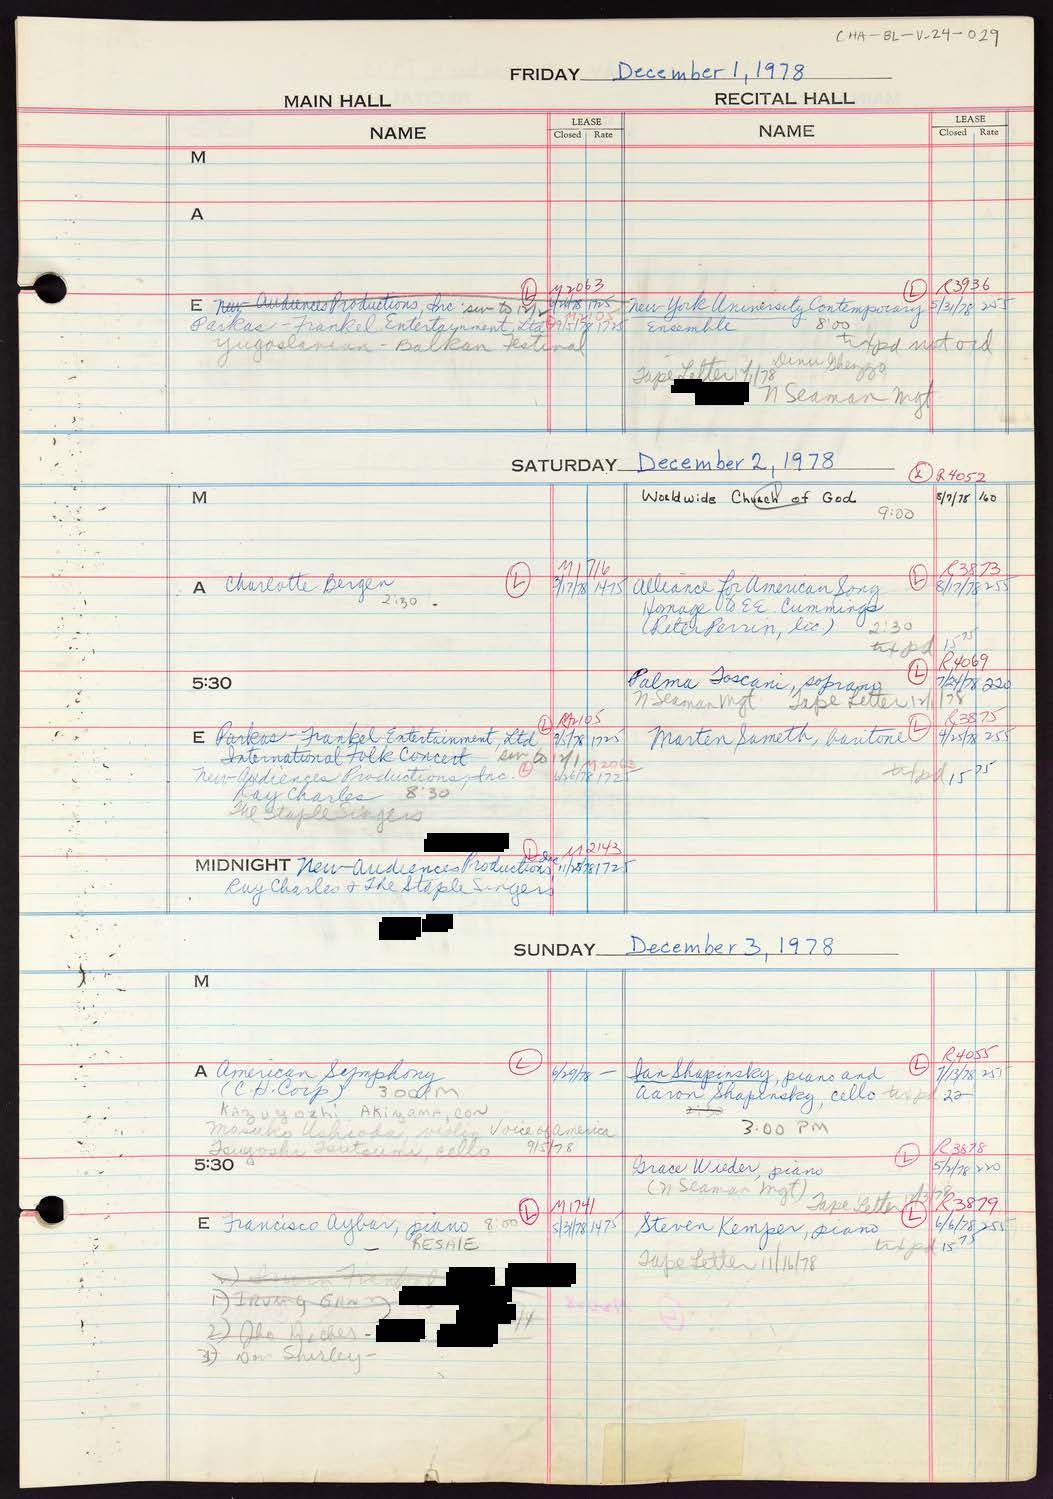 CHA-BL-V-24-029
FRIDAY December 1, 1978
MAIN HALL
RECITAL HALL
NAME
LEASE
Closed Rate
NAME
LEASE
Closed Rate
M
A
M2063
R3936
E New Audiences Productions, Inc sw to 12/2 1725
New York University Contemporary 5/31/78 255
M2105
Parkas-Frankel Entertainment, Ltd 9/5/78 1725
Ensemble 8:00
Yugoslavian-Balkan Festival
txt pd not ord
Tape Letter 78
N Seaman Mgt
SATURDAY December 2, 1978
L R4052
M
Worldwide Church of God 8/7/78 160
9:00
M1716
R3873
A Charlotte Bergen L 3/17/78 1475
Alliance for American Song L 8/17/78 255
2:30
Homage to E.E. Cummings
(Peter Perrin, loc.) 2:30
txt pd 15 75
R4069
5:30
Palma Toscani, soprano L 7/24/78 220
N Seaman Mgt Tape Letter 12/1/78
M2105
R3875
E Parkas-Frankel Entertainment, Ltd L 9/5/78 1725
Marten Sameth, baritone L 4/25/78 255
International Folk Concert sw to 12/1 M2063
New Audiences Productions, Inc. L 6/26/78 1725
txt pd 15 75
Ray Charles 8:30
The Staple Singers
L M2143
MIDNIGHT New Audiences Productions, Inc 11/28/78 1725
Ray Charles & The Staple Singers
SUNDAY December 3, 1978
M
R4055
A American Symphony L 6/29/78 —
Ian Shapinsky, piano and L 7/13/78 255
(C.H. Corp) 3:00 PM
Aaron Shapinsky, cello txt pd 22
Kazuyoshi Akiyama, con
3:00 PM
Masuko Ushioda, violin Voice of America
Tsuyoshi Tsutsumi, cello 9/5/78
R3878
5:30
Grace Wieder, piano L 5/2/78 220
(N Seaman Mgt) Tape Letter
M1741
R3879
E Francisco Aybar, piano 8:00 L 5/31/78 1475
Steven Kemper, piano L 6/6/78 255
RESALE
txt pd 15 75
Tape Letter 11/16/78
1)
1) Irving
2)
3) Don Shirley-